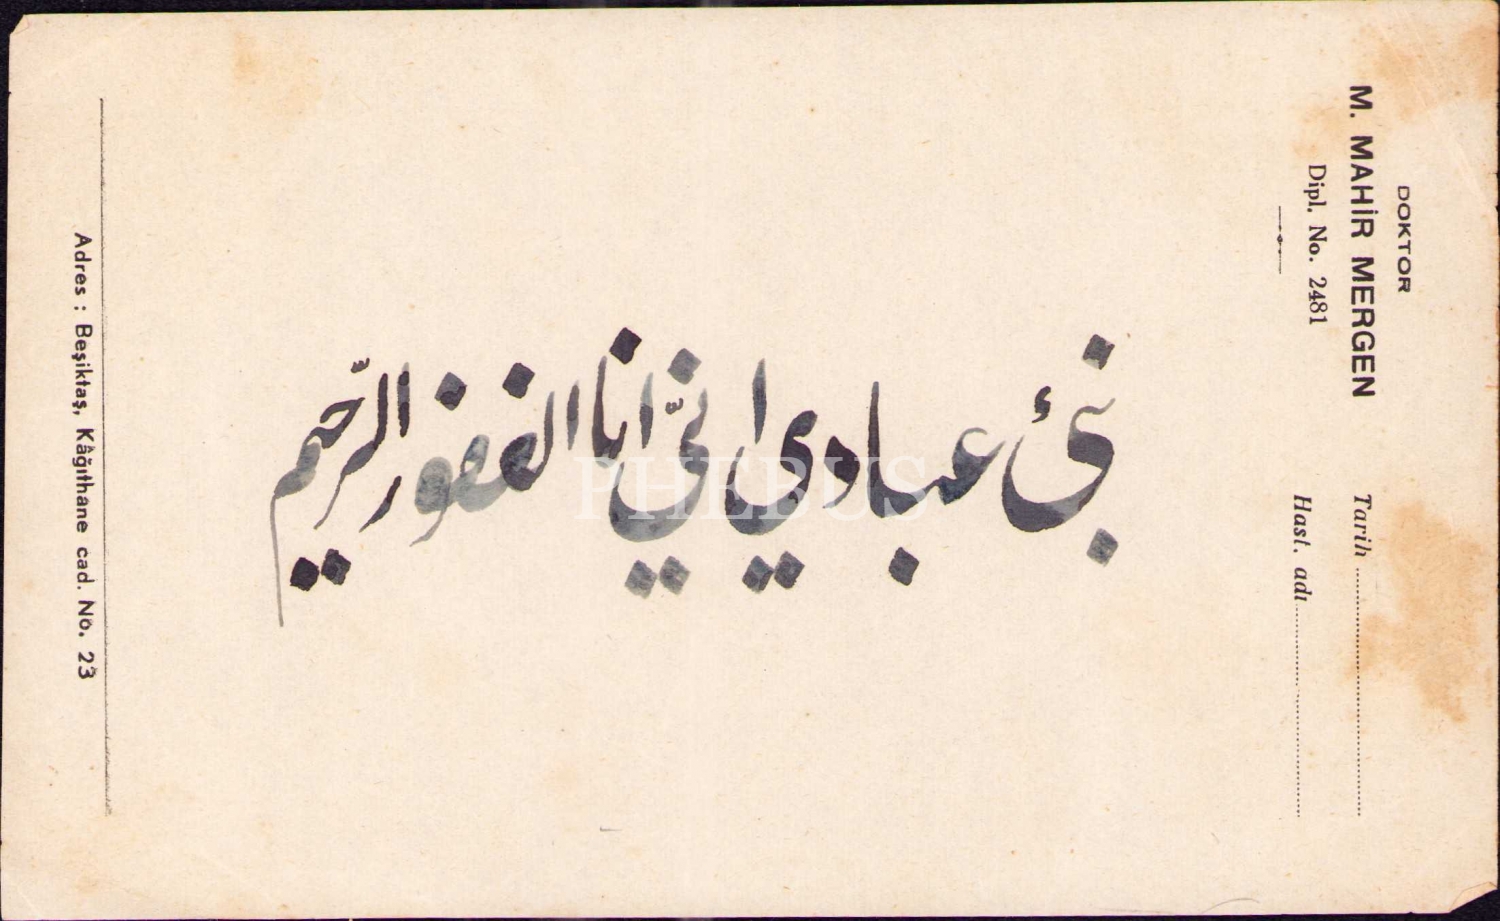 نبئ عبادي اني انا الغفور الرّحيم
DOKTOR
M. MAHİR MERGEN
Dipl. No. 2481
Tarih
Hast. adı
Adres : Beşiktaş, Kâğıthane cad. No. 23
PHEBUS